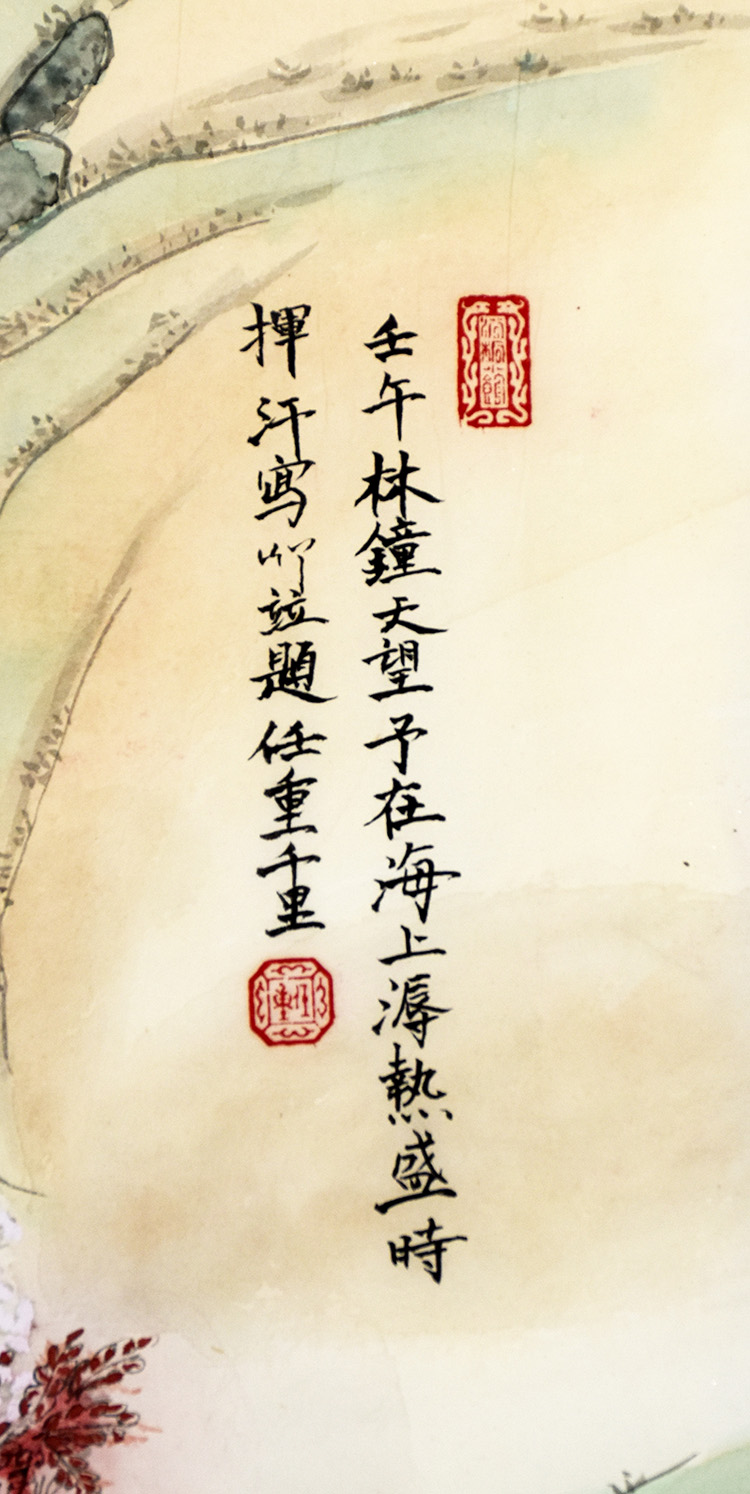 壬午林鐘天望予在海上溽熱盛時
揮汗寫竝題任重千里